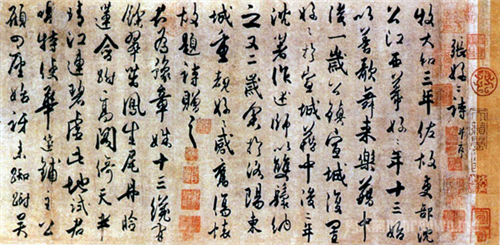 張好〻詩 并序
牧大和三年佐故吏部沈
公江西幕好〻年十三始
以善歌舞來樂籍中
後一歲公鎮宣城復置
好〻於宣城籍中後二年
沈著作述師以雙鬟納
之又二歲余於洛陽東
城重覩好〻感舊傷懷
故題詩贈之
君為豫章姝十三纔有
餘翠茁鳳生尾丹臉
蓮含跗高閣倚天半
晴江連碧虛此地試君
唱特使華筵鋪主公
顧四座始訝來踟躕吳